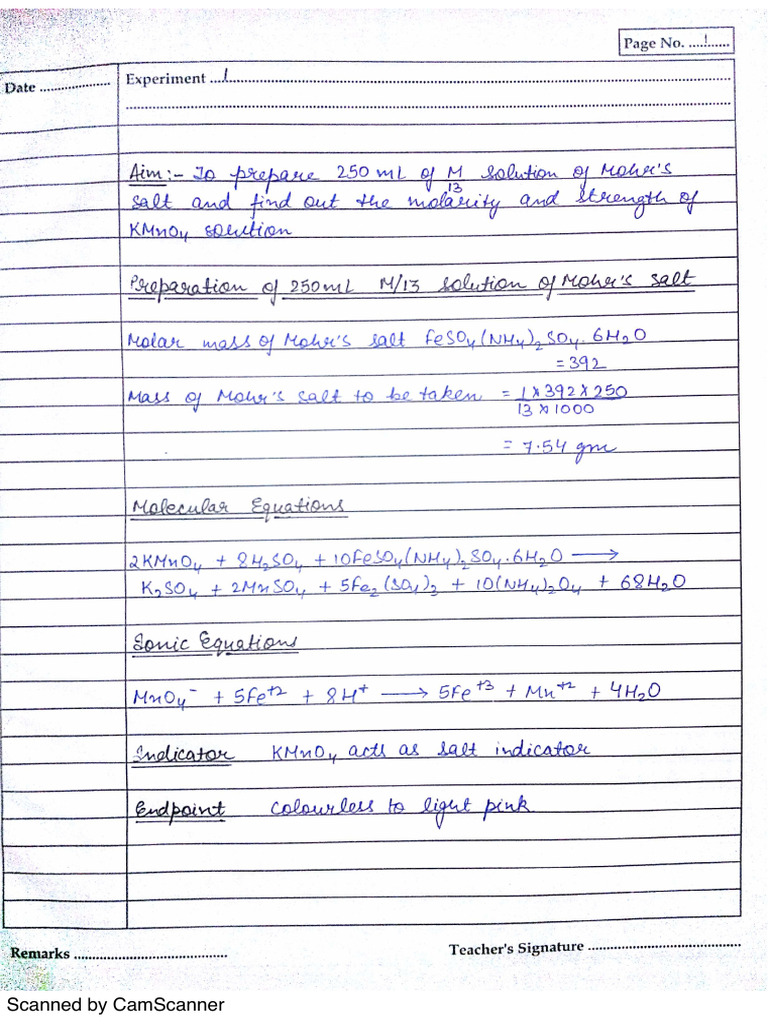 Page No. ....1......
Date ...................
Experiment ...1...
Aim:- To prepare 250 mL of M/13 solution of Mohr's
salt and find out the molarity and strength of
KMnO₄ solution
Preparation of 250mL M/13 solution of Mohr's salt
Molar mass of Mohr's salt FeSO₄(NH₄)₂SO₄.6H₂O
= 392
Mass of Mohr's salt to be taken = 1×392×250
13×1000
= 7.54 gm
Molecular Equations
2KMnO₄ + 8H₂SO₄ + 10FeSO₄(NH₄)₂SO₄.6H₂O ⟶
K₂SO₄ + 2MnSO₄ + 5Fe₂(SO₄)₂ + 10(NH₄)₂O₄ + 68H₂O
Ionic Equations
MnO₄⁻ + 5Fe⁺² + 8H⁺ ⟶ 5Fe⁺³ + Mn⁺² + 4H₂O
Indicator KMnO₄ acts as salt indicator
Endpoint colourless to light pink
Remarks ..........................................
Teacher's Signature ..........................................
Scanned by CamScanner